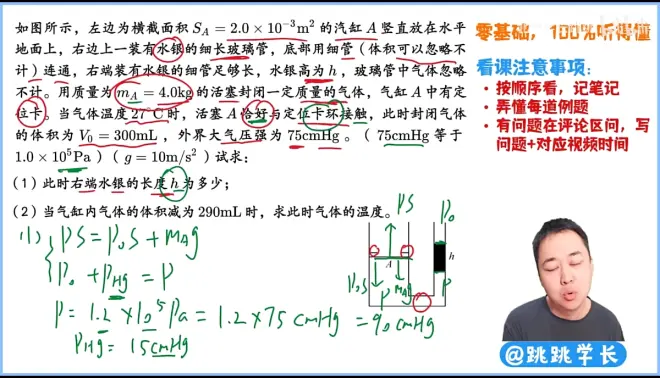 如图所示，左边为横截面积 S_A = 2.0 × 10⁻³m² 的汽缸 A 竖直放在水平
地面上，右边上一装有水银的细长玻璃管，底部用细管（体积可以忽略不
计）连通，右端装有水银的细管足够长，水银高为 h，玻璃管中气体忽略
不计。用质量为 m_A = 4.0kg 的活塞封闭一定质量的气体，气缸 A 中有定
位卡。当气体温度 27°C 时，活塞 A 恰好与定位卡环接触，此时封闭气体
的体积为 V₀ = 300mL，外界大气压强为 75cmHg。（ 75cmHg 等于
1.0 × 10⁵Pa ）（ g = 10m/s² ）试求：
（1）此时右端水银的长度 h 为多少；
（2）当气缸内气体的体积减为 290mL 时，求此时气体的温度。
(1) PS = P₀S + m_Ag
P₀ + P_Hg = P
P = 1.2 × 10⁵ Pa = 1.2 × 75 cmHg = 90 cmHg
P_Hg = 15 cmHg
PS
P₀
h
A
P₀S
P
m_Ag
P
零基础，100%听得懂
看课注意事项：
• 按顺序看，记笔记
• 弄懂每道例题
• 有问题在评论区问，写
问题+对应视频时间
@跳跳学长